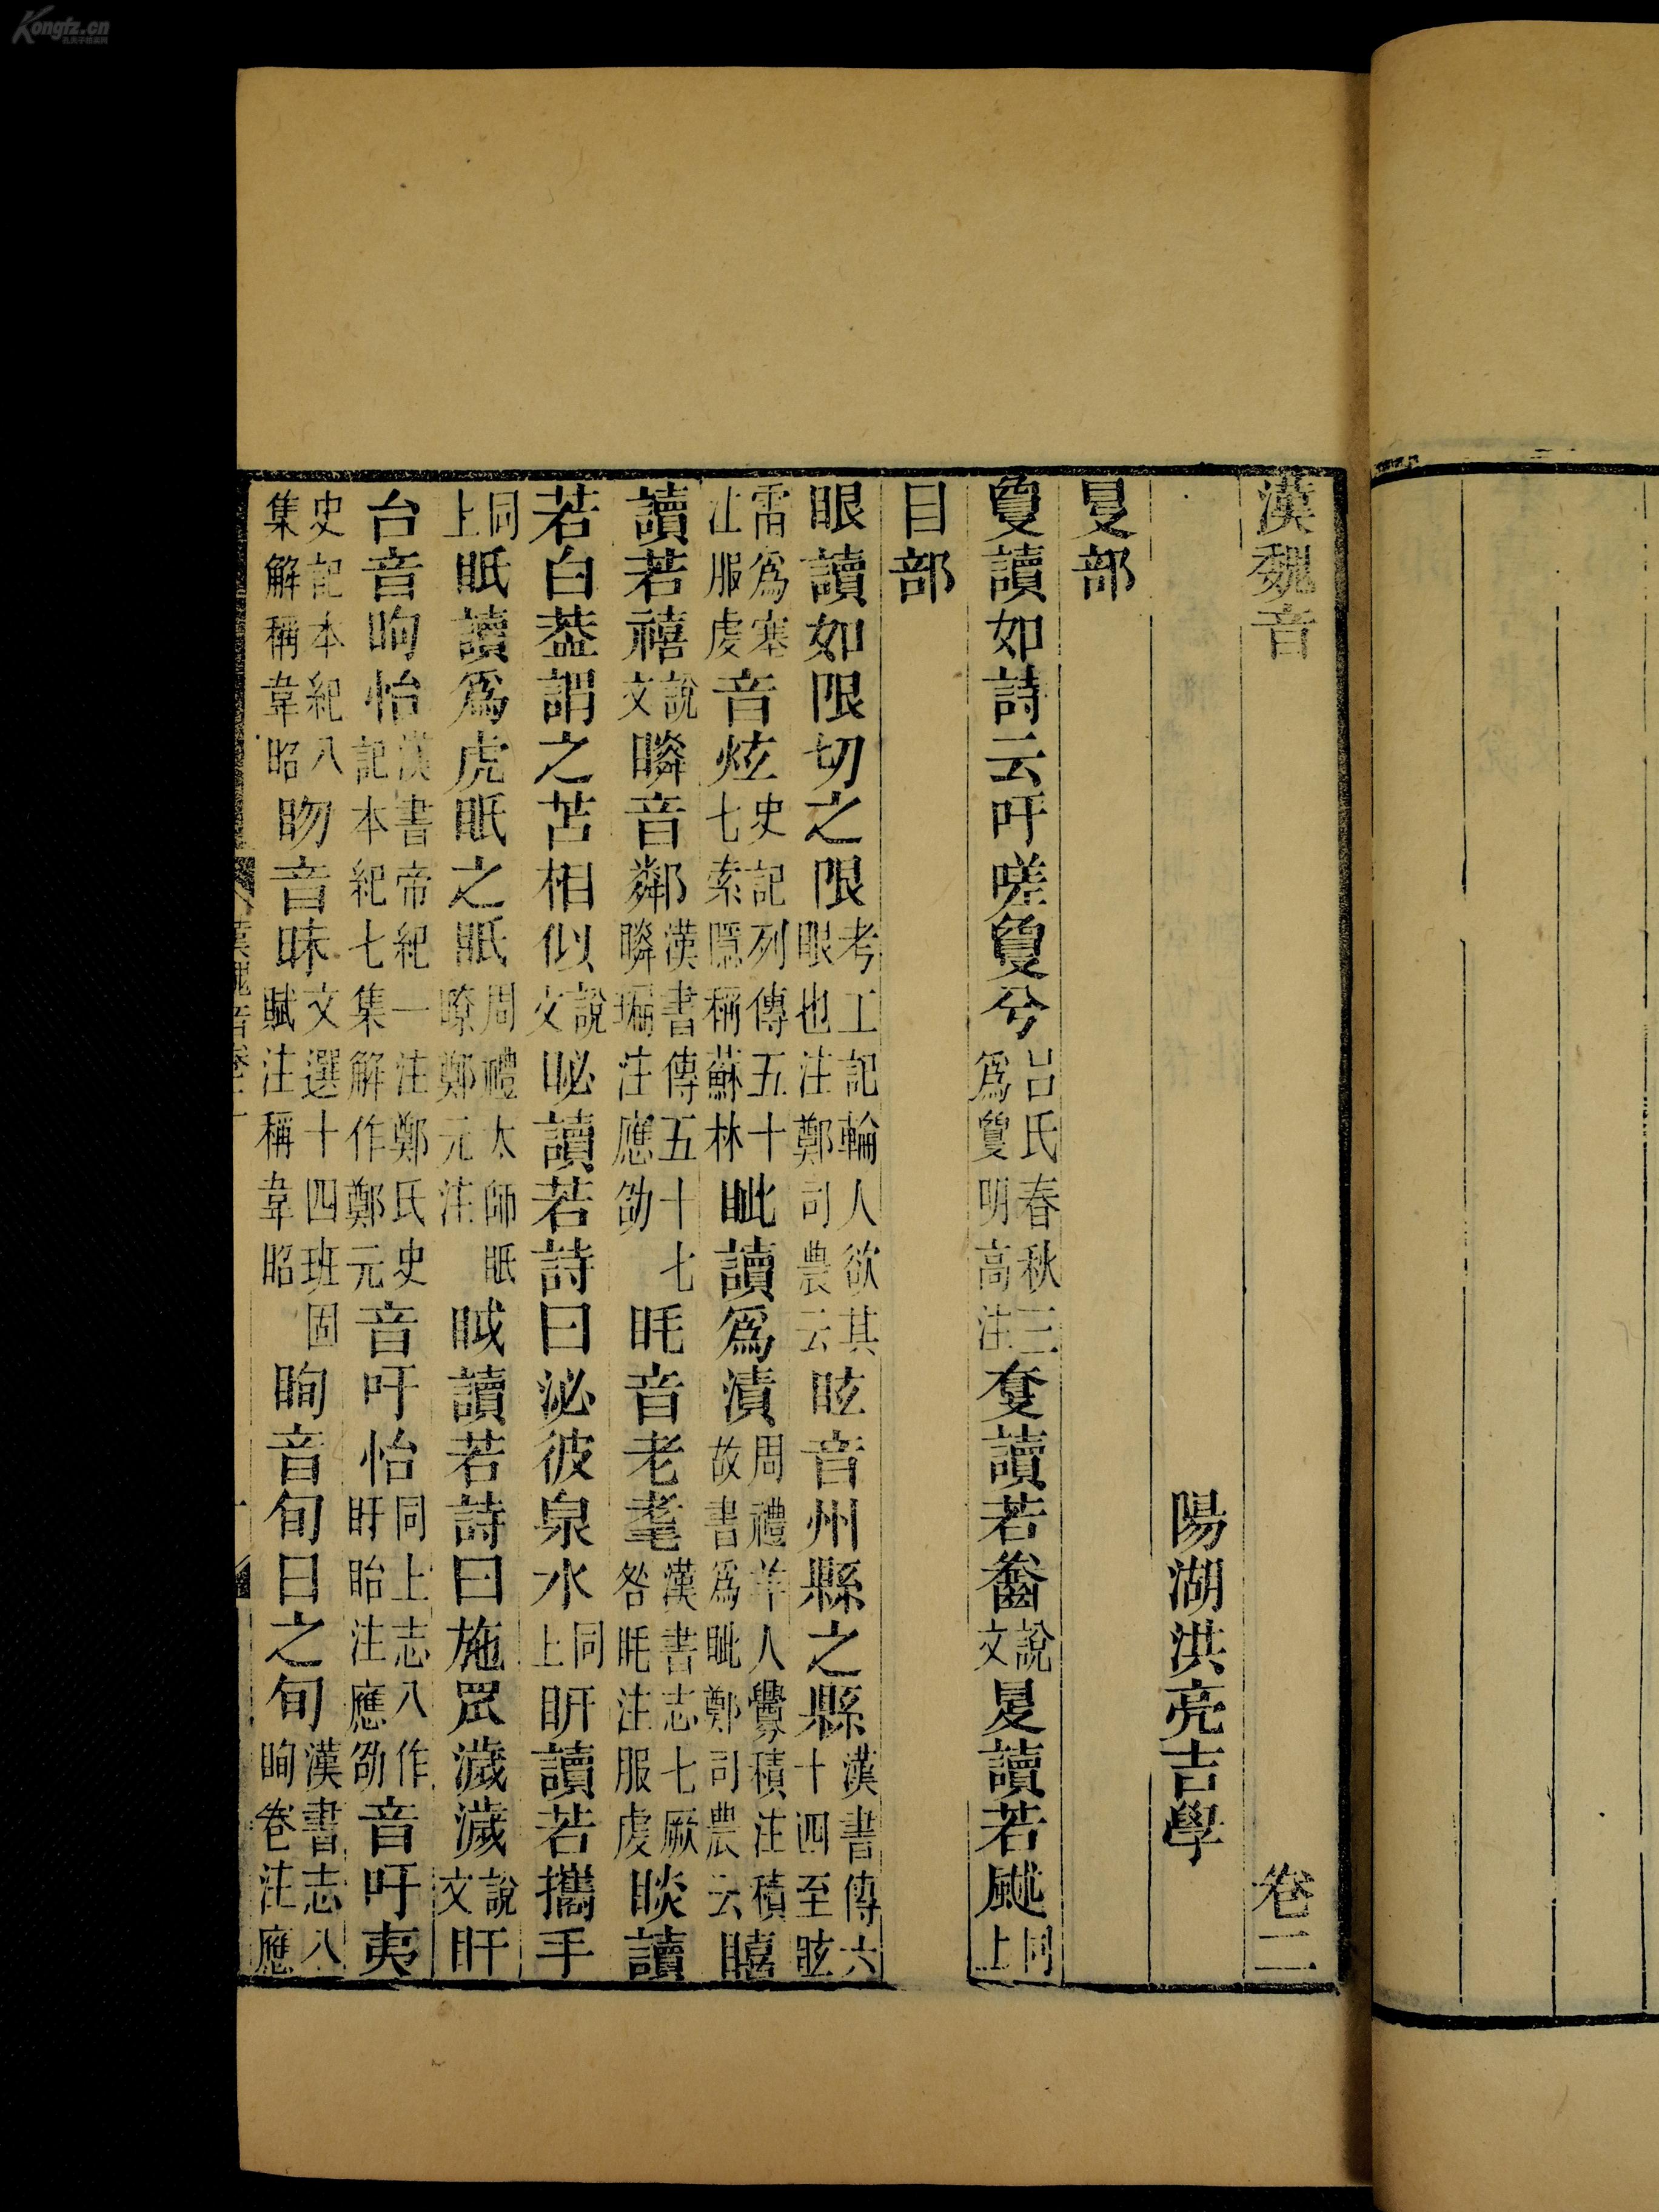 漢魏音 卷二
陽湖洪亮吉學
𥄎部
敻讀如詩云吁嗟敻兮呂氏春秋三為敻明高注 奞讀若齤說文 𥄎讀若䫻同上
目部
眼讀如限切之限考工記輪人欲其眼也注鄭司農云 眩音州縣之縣漢書傳六十四至眩
雷為塞注服虔 音炫史記列傳五十七索隱稱蘇林 眦讀為漬周禮羊人釁積注積故書為眦鄭司農云 瞦
讀若禧說文 瞵音鄰漢書傳五十七瞵㻞注應劭 眊音老耄漢書志七厥咎眊注服虔 睒讀
若白蓋謂之苫相似說文 䀣讀若詩曰泌彼泉水同上 盱讀若攜手
同上 眂讀為虎眂之眂周禮太師眂瞭鄭元注 眓讀若詩曰施罛濊濊說文 盱
台音昫怡漢書帝紀一注鄭氏史記本紀七集解作鄭元 音吁怡同上志八作盱眙注應劭 音吁夷
史記本紀八集解稱韋昭 眒音昧文選十四班固賦注稱韋昭 眴音旬日之旬漢書志八眴卷注應
漢魏音卷二
一
Kongfz.cn
孔夫子旧书网